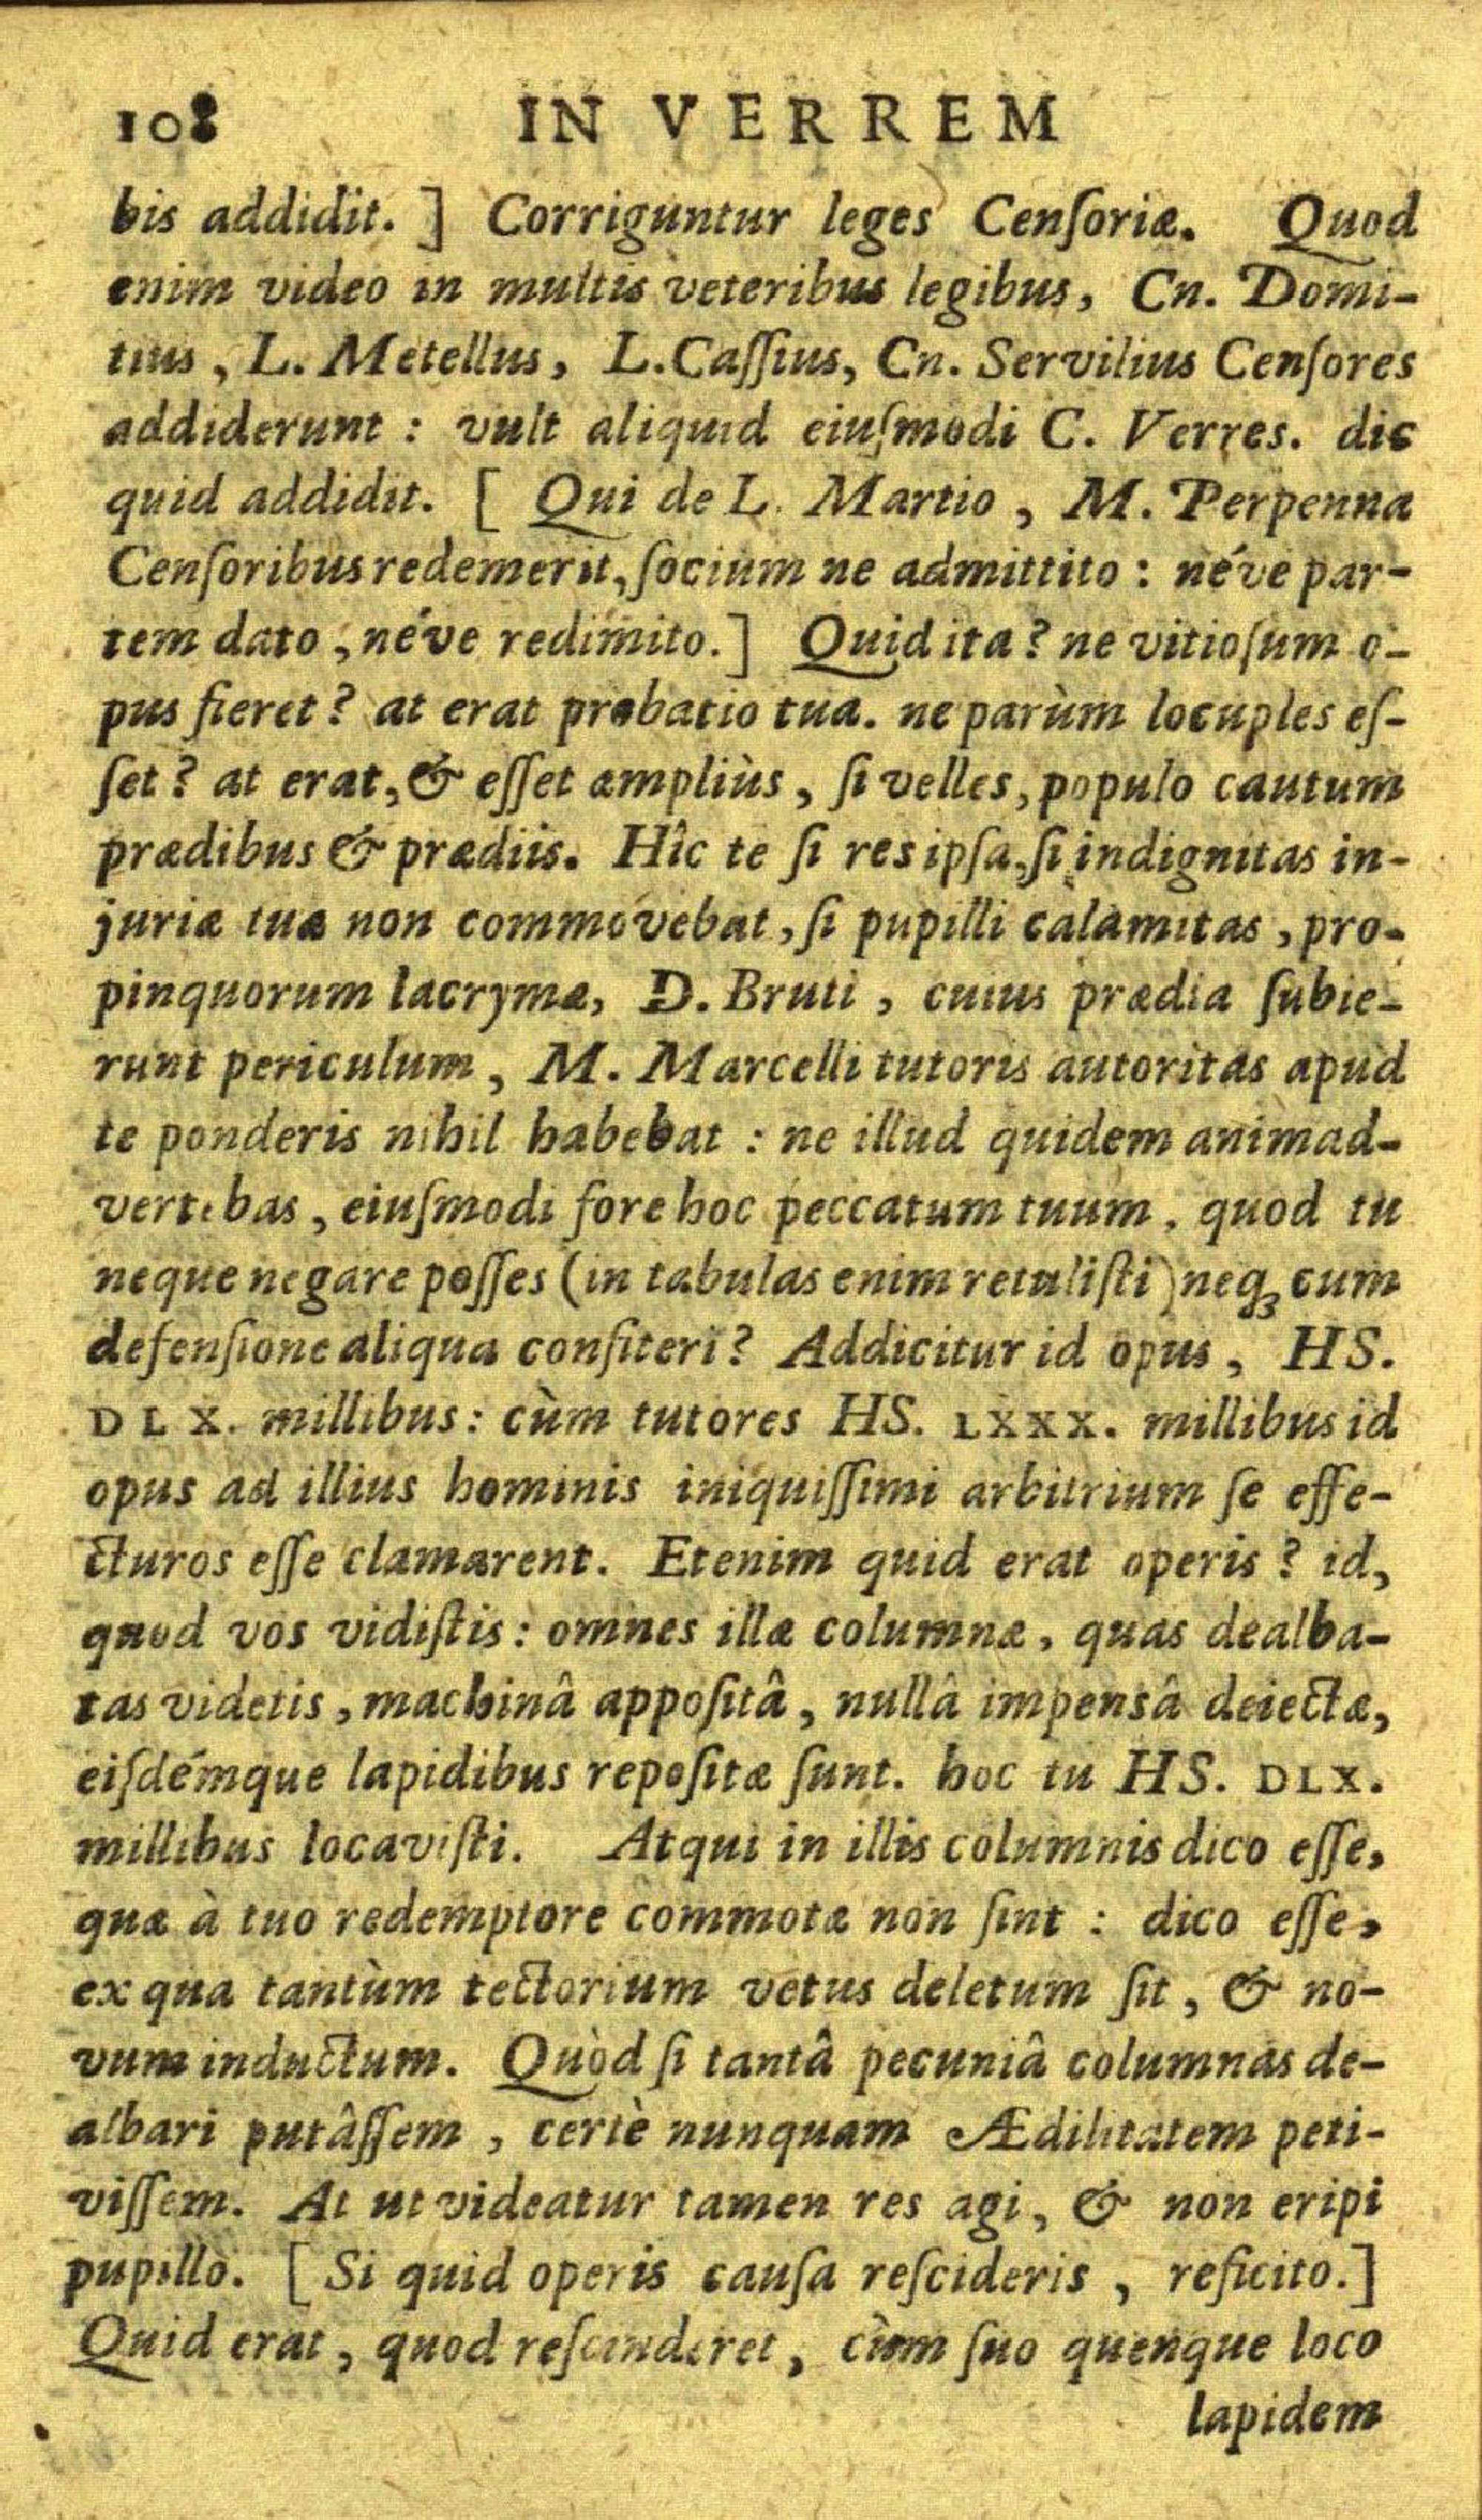 108 IN VERREM
bis addidit. ] Corriguntur leges Cenſoriæ. Quod
enim video in multis veteribus legibus, Cn. Domi-
tius, L. Metellus, L. Caſſius, Cn. Servilius Cenſores
addiderunt : vult aliquid eiuſmodi C. Verres. dic
quid addidit. [ Qui de L. Martio, M. Perpenna
Cenſoribus redemerit, ſocium ne admittito : néve par-
tem dato, néve redimito.] Quid ita? ne vitioſum o-
pus fieret? at erat probatio tua. ne parùm locuples eſ-
ſet? at erat, & eſſet ampliùs, ſi velles, populo cautum
prædibus & prædiis. Hîc te ſi res ipſa, ſi indignitas in-
juriæ tuæ non commovebat, ſi pupilli calamitas, pro-
pinquorum lacrymæ, D. Bruti, cuius prædia ſubie-
runt periculum, M. Marcelli tutoris autoritas apud
te ponderis nihil habebat : ne illud quidem animad-
vertebas, eiuſmodi fore hoc peccatum tuum, quod tu
neque negare poſſes (in tabulas enim retuliſti) neq; cum
defenſione aliqua confiteri? Addicitur id opus, HS.
DLX. millibus: cùm tutores HS. LXXX. millibus id
opus ad illius hominis iniquiſſimi arbitrium ſe effe-
cturos eſſe clamarent. Etenim quid erat operis? id,
quod vos vidiſtis: omnes illæ columnæ, quas dealba-
tas videtis, machinâ appoſitâ, nullâ impensâ deiectæ,
eiſdémque lapidibus repoſitæ ſunt. hoc tu HS. DLX.
millibus locaviſti. Atqui in illis columnis dico eſſe,
quæ à tuo redemptore commotæ non ſint : dico eſſe,
ex qua tantùm tectorium vetus deletum ſit, & no-
vum inductum. Quòd ſi tantâ pecuniâ columnas de-
albari putâſſem, certè nunquam Ædilitatem peti-
viſſem. At ut videatur tamen res agi, & non eripi
pupillo. [ Si quid operis cauſa reſcideris, reficito.]
Quid erat, quod reſcinderet, cùm ſuo quenque loco
lapidem